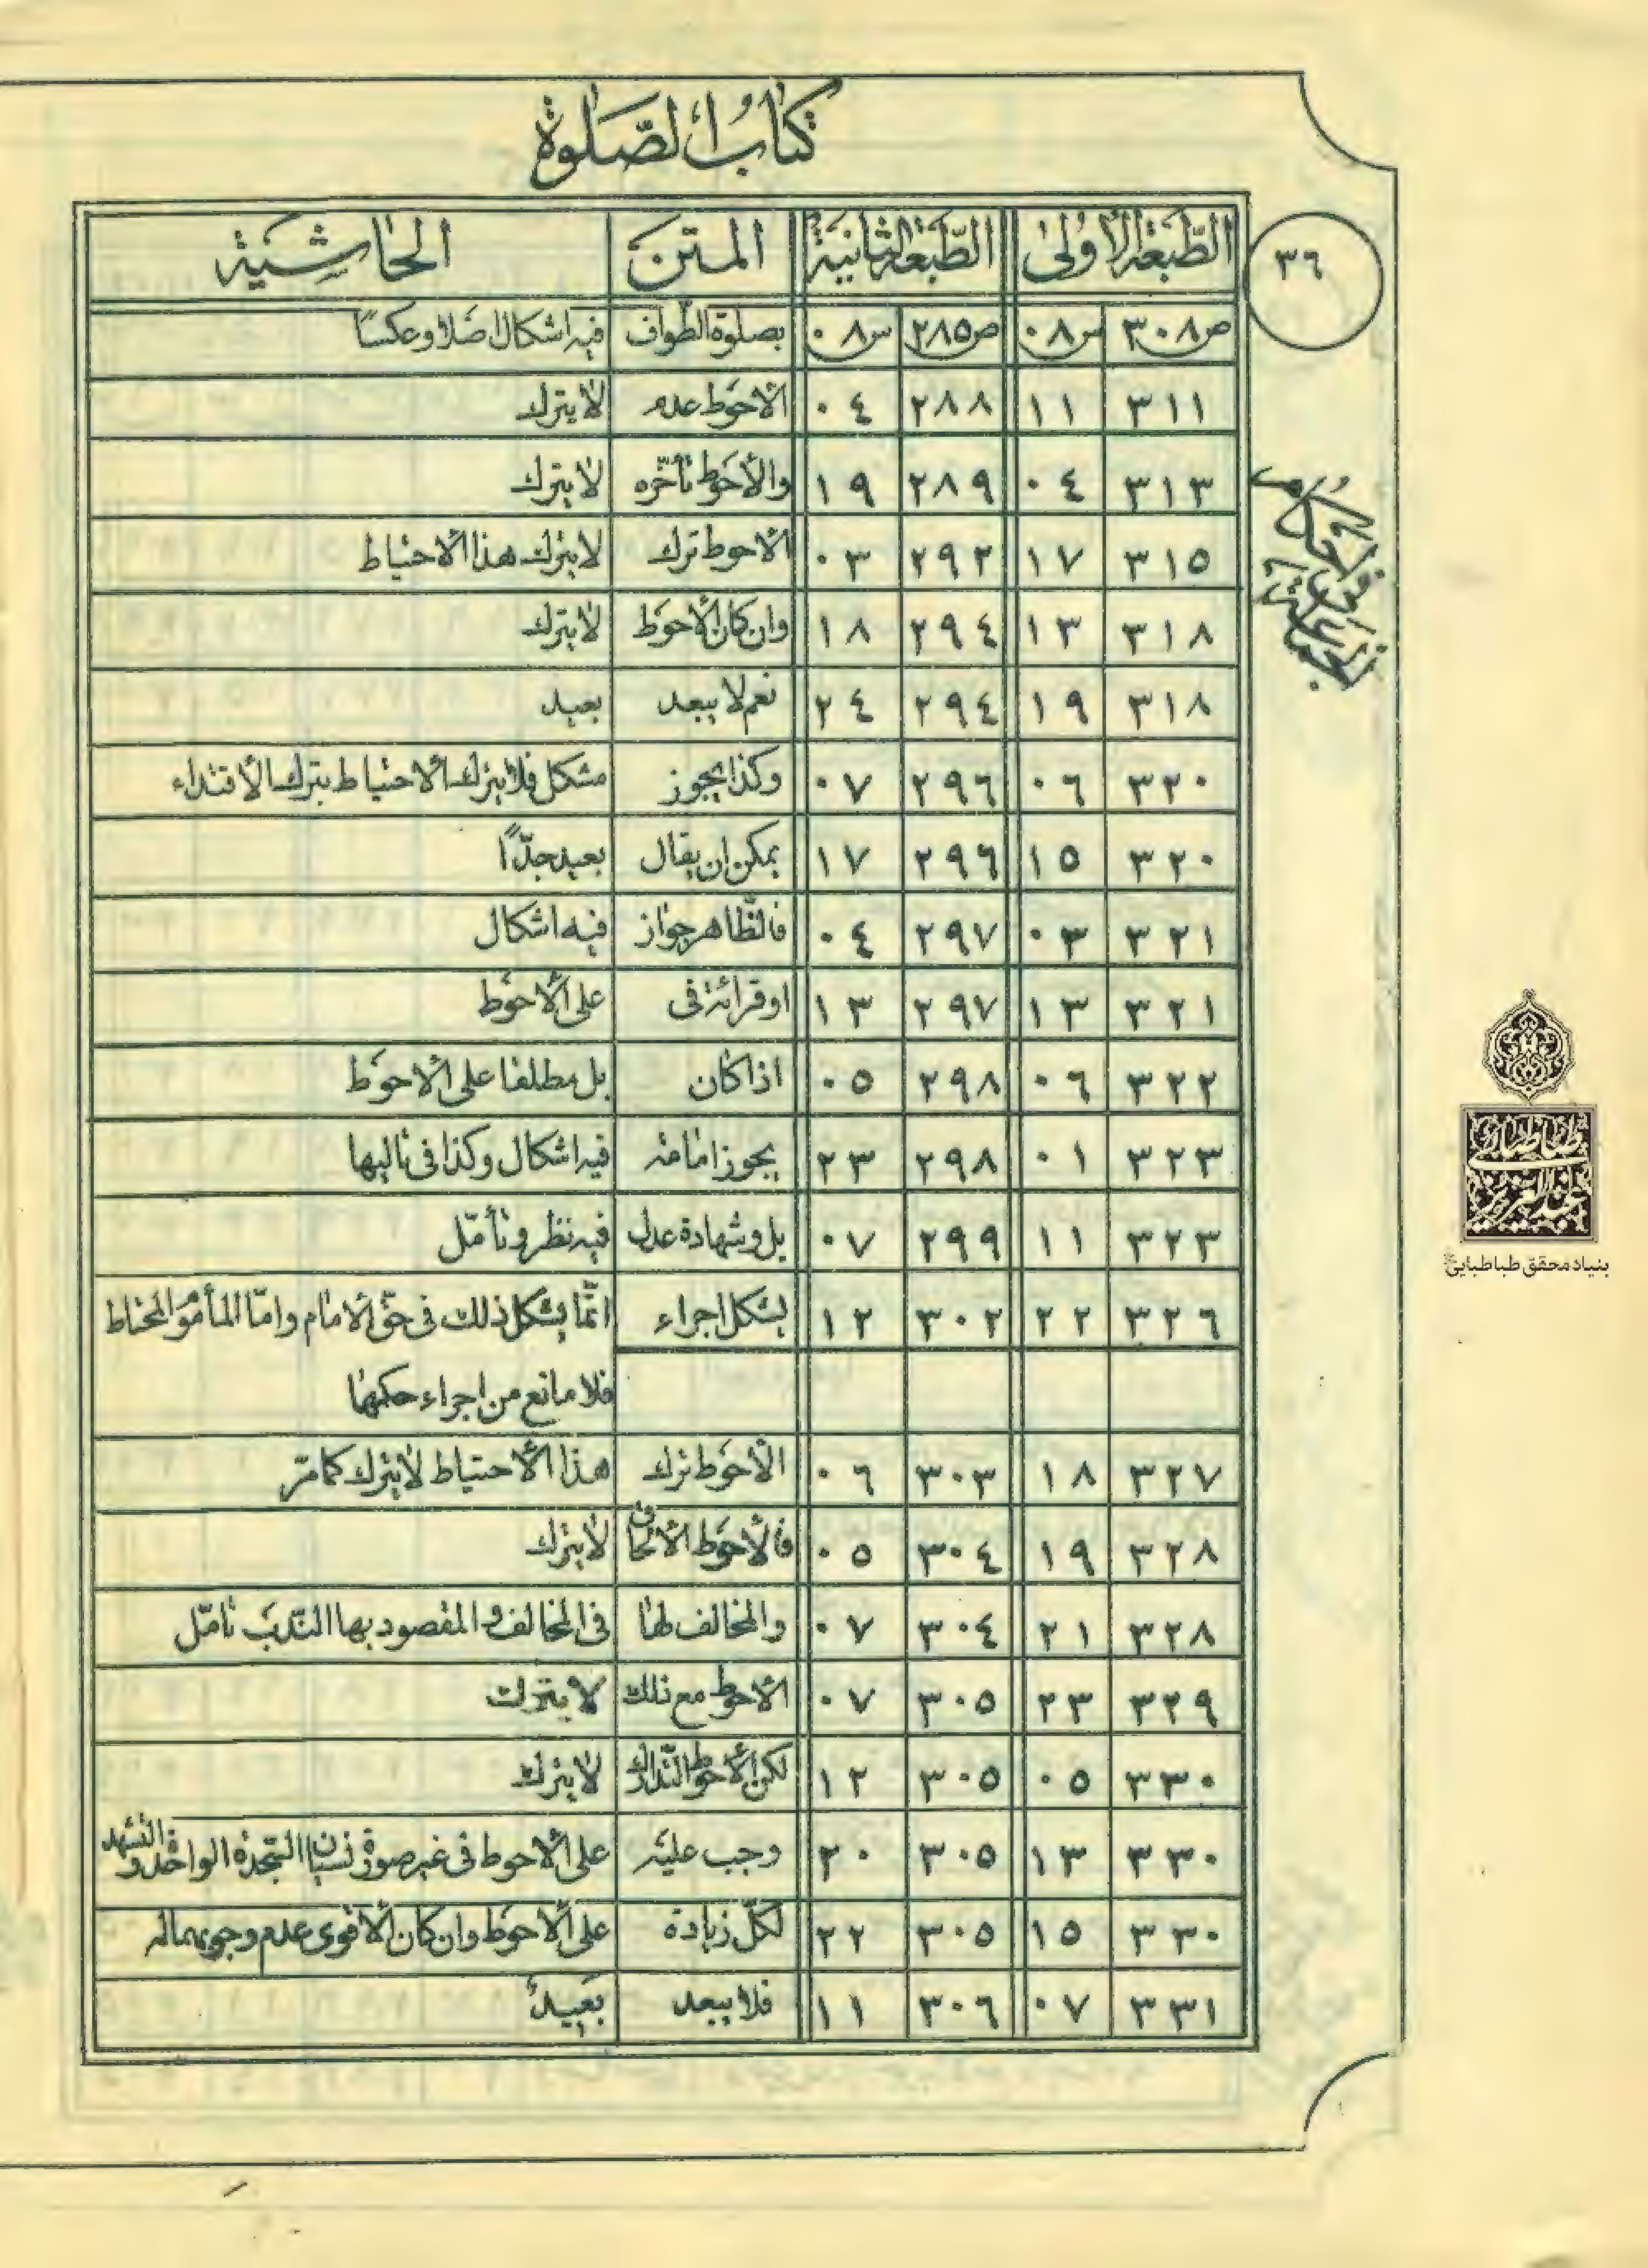 كتاب الصّلوة
٣٦
الطّبعة الأولى الطّبعة الثانية المتن الحاشية
ص٣٠٨ س٠٨ ص٢٨٥ س٠٨ بصلوة الطّواف فيه اشكال اصلا وعكسًا
٣١١ ١١ ٢٨٨ ٠٤ الأحوط عدم لا يترك
٣١٣ ٠٤ ٢٨٩ ١٩ والأحوط تأخّره لا يترك
٣١٥ ١٧ ٢٩٢ ٠٣ الأحوط ترك لا يترك هذا الأحتياط
٣١٨ ١٣ ٢٩٤ ١٨ وان كان الأحوط لا يترك
٣١٨ ١٩ ٢٩٤ ٢٤ نعم لا يبعد بعيد
٣٢٠ ٠٦ ٢٩٦ ٠٧ وكذا يجوز مشكل فلا يترك الأحتياط بترك الأقتداء
٣٢٠ ١٥ ٢٩٦ ١٧ يمكن ان يقال بعيد جدّاً
٣٢١ ٠٣ ٢٩٧ ٠٤ فالظّاهر جواز فيه اشكال
٣٢١ ١٣ ٢٩٧ ١٣ او قرائة في على الأحوط
٣٢٢ ٠٦ ٢٩٨ ٠٥ اذا كان بل مطلقا على الأحوط
٣٢٣ ٠١ ٢٩٨ ٢٣ يجوز امامة فيه اشكال وكذا في تاليها
٣٢٣ ١١ ٢٩٩ ٠٧ بل وشهادة عدل فيه نظر وتأمّل
٣٢٦ ٢٢ ٣٠٢ ١٢ يشكل اجراء انّما يشكل ذلك في حقّ الامام وامّا المأموم المحتاط
فلا مانع من اجراء حكمها
٣٢٧ ١٨ ٣٠٣ ٠٦ الأحوط ترك هذا الأحتياط لا يترك كما مرّ
٣٢٨ ١٩ ٣٠٤ ٠٥ فالأحوط الألحاق لا يترك
٣٢٨ ٢١ ٣٠٤ ٠٧ والمخالف لها في المخالف والمقصود بها النّدب تامّل
٣٢٩ ٢٣ ٣٠٥ ٠٧ الأحوط مع ذلك لا يترك
٣٣٠ ٠٥ ٣٠٥ ١٢ لكن الأحوط التّدارك لا يترك
٣٣٠ ١٣ ٣٠٥ ٢٠ وجب عليه على الأحوط في غير صورة نسيان السّجدة الواحدة والتّشهد
٣٣٠ ١٥ ٣٠٥ ٢٢ لكلّ زيادة على الأحوط وان كان الأقوى عدم وجوبهما له
٣٣١ ٠٧ ٣٠٦ ١١ فلا يبعد بعيد
بنياد محقق طباطبايى